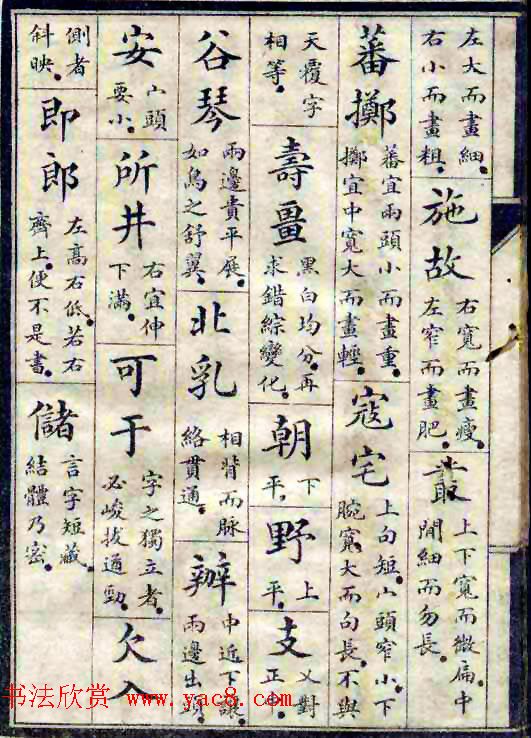 左大而畫細。
右小而畫粗。
施故
右寬而畫瘦。
左窄而畫肥。
叢
上下寬而微扁。中
間細而勿長。
蕃擲
蕃宜兩頭小而畫重。
擲宜中寬大而畫輕。
寇宅
上句短。宀頭窄小。下
腕寬大而句長。不與
天覆字
相等。
壽畺
黑白均分。再
求錯綜變化。
朝
下
平。
野
上
平。
支
乂對
正中。
谷琴
兩邊貴平展。
如鳥之舒翼。
北乳
相背而脉
絡貫通。
辦
中近下讓
兩邊出頭。
安
宀頭
要小。
所井
右宜伸
下滿。
可于
字之獨立者。
必峻拔遒勁。
欠入
側者
斜映。
即郎
左高右低。若右
齊上。便不是書。
儲
言字短藏。
結體乃密。
书法欣赏 www.yac8.com